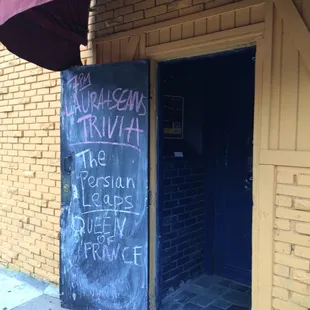 LAURA+SEAN'S
TRIVIA
The
Persian
Leaps
QUEEN
OF
FRANCE